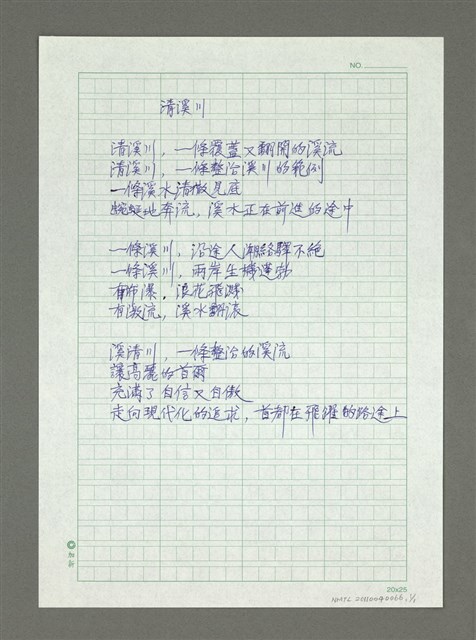 NO.
清溪川
清溪川，一條覆蓋又翻開的溪流
清溪川，一條整治溪川的範例
一條溪水清澈見底
蜿蜒地奔流，溪水正在前進的途中
一條溪川，沿途人潮絡驛不絕
一條溪川，兩岸生機蓬勃
有布瀑，浪花飛濺
有激流，溪水翻滾
溪清川，一條整治的溪流
讓高麗的首爾
充滿了自信又自傲
走向現代化的追求，首都在飛躍的路途上
20x25